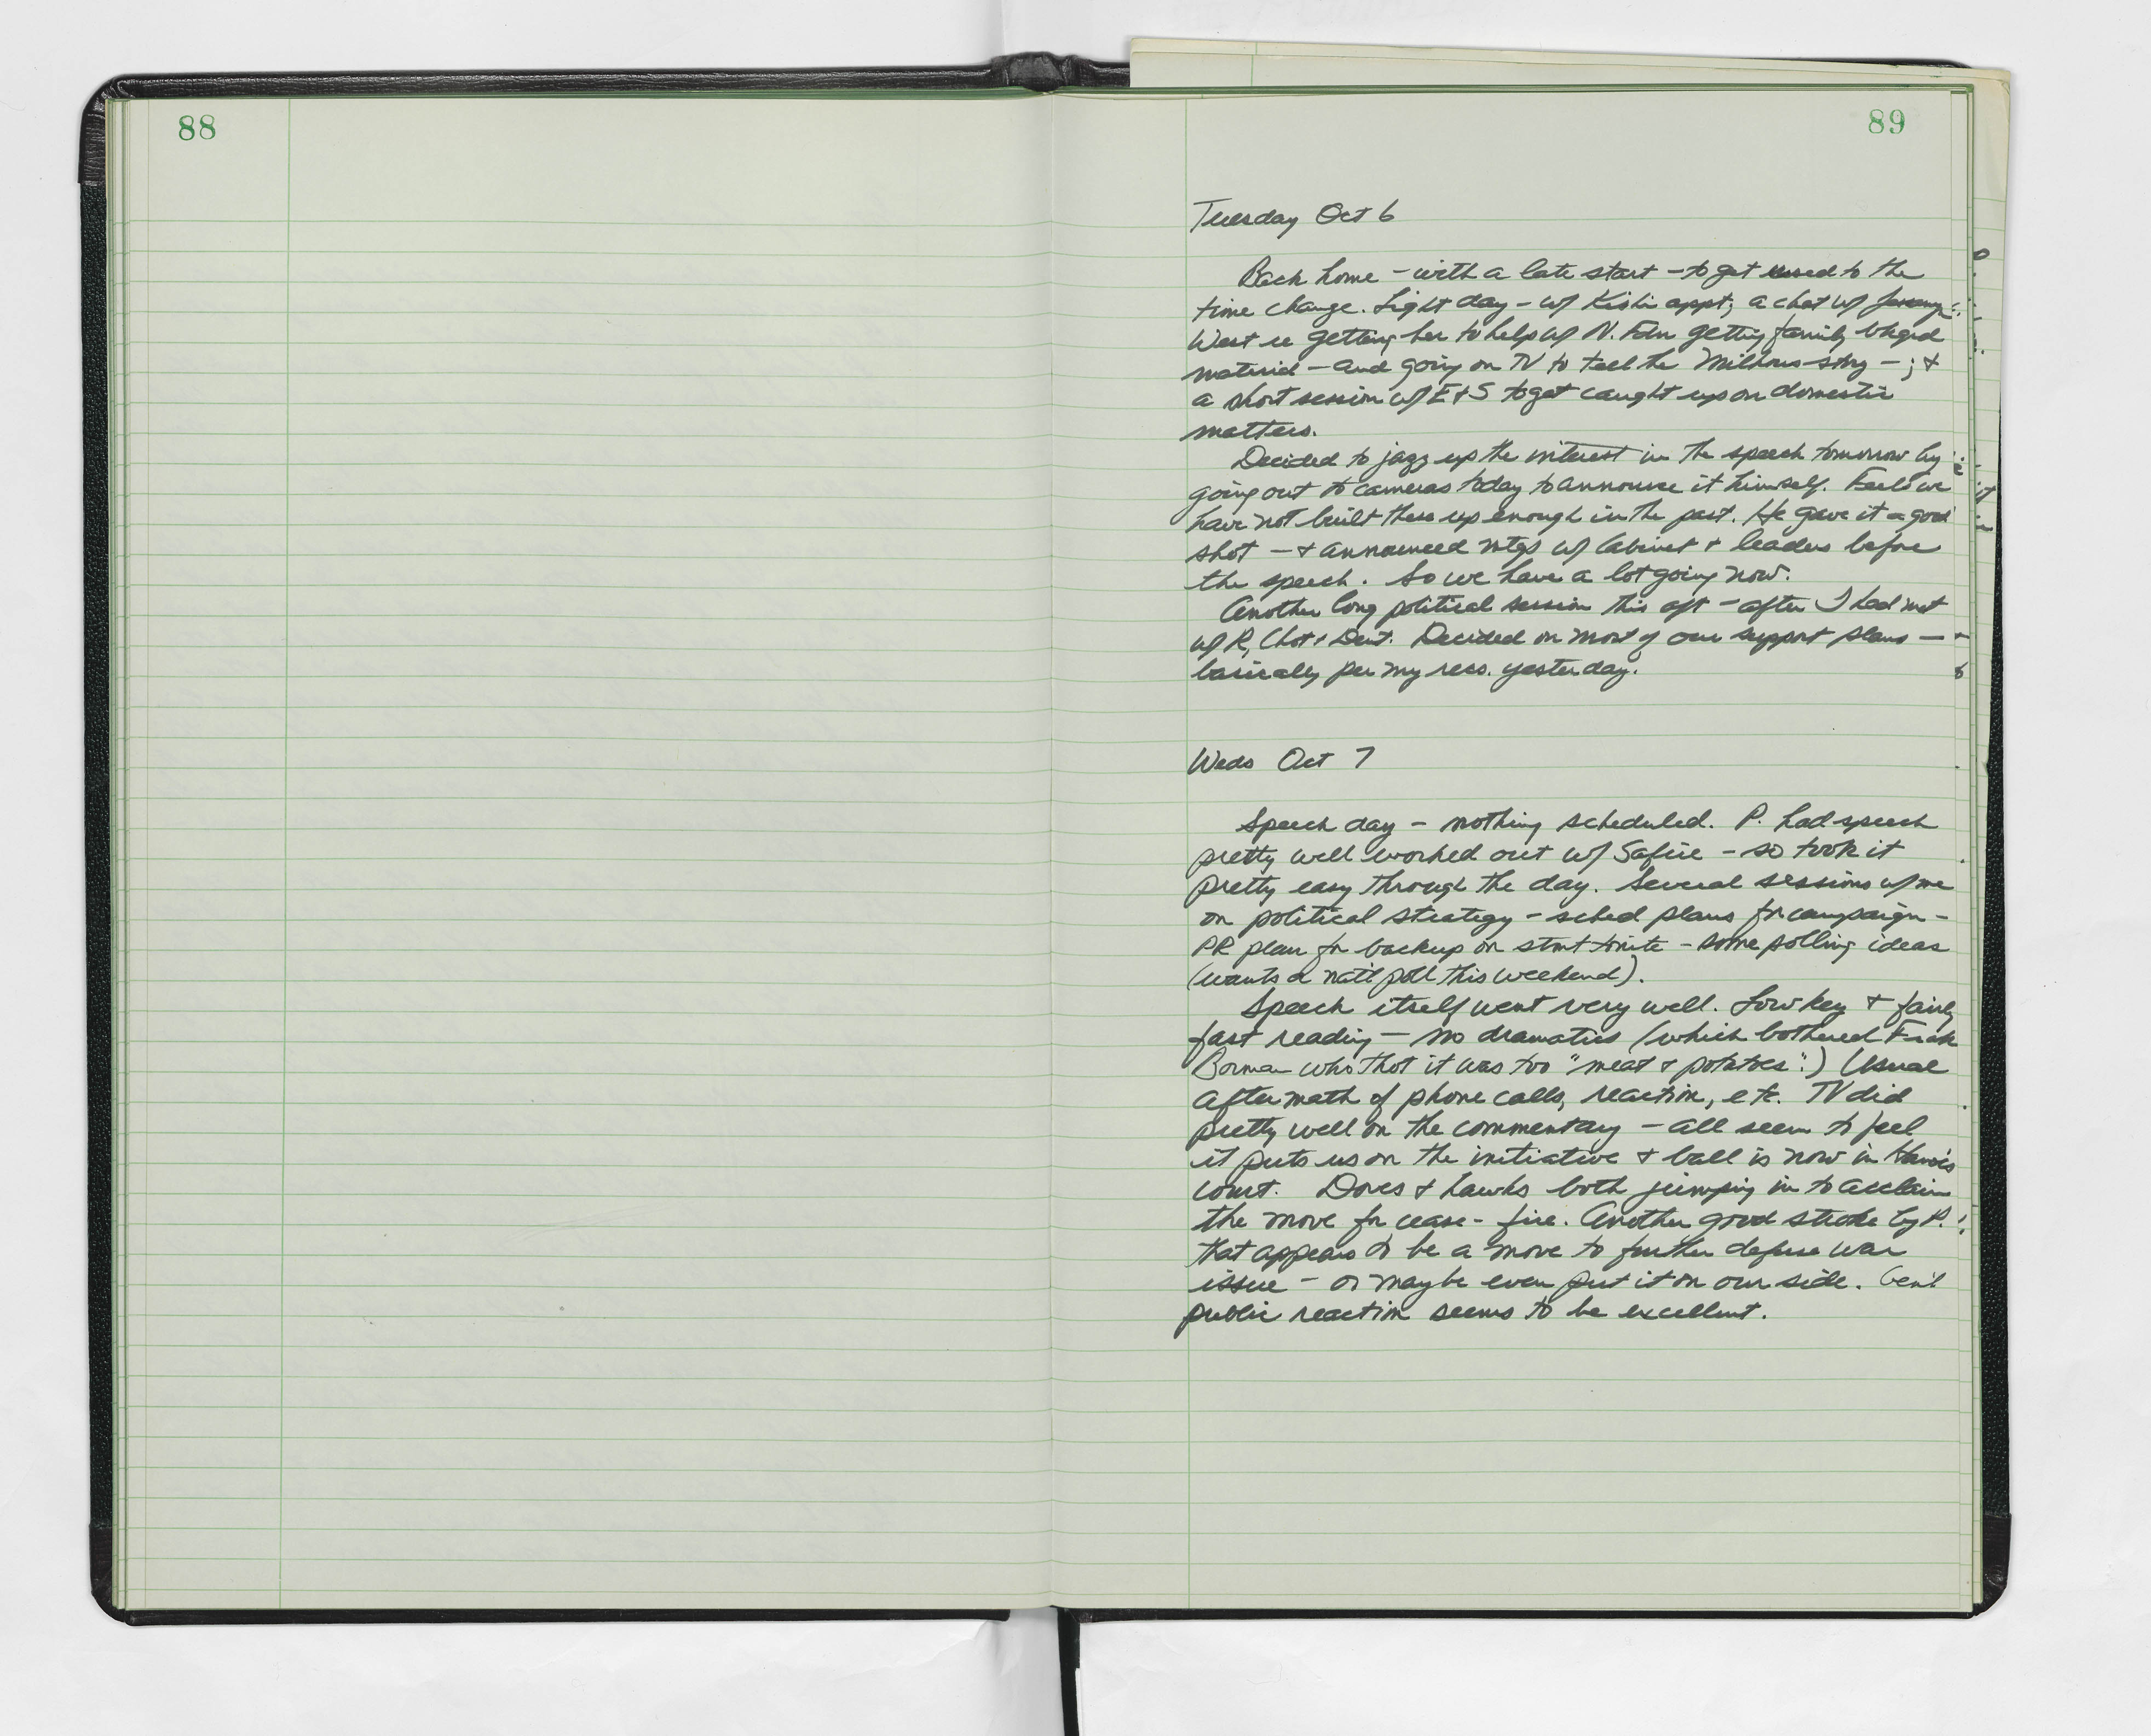 88
89
Tuesday Oct 6
Back home - with a late start - to get used to the
time change. Light day - w/ Kishi appt; a chat w/ Jessamyn
West re getting her to help w/ N. Fdn getting family bkgrd
material - and going on TV to tell the Milhous story - ; &
a short session w/ E & S to get caught up on domestic
matters.
Decided to jazz up the interest in the speech tomorrow by
going out to cameras today to announce it himself. Feels we
have not built these up enough in the past. He gave it a good
shot - & announced mtgs w/ Cabinet & leaders before
the speech. So we have a lot going now.
Another long political session this aft - after I had met
w/ R, Chot & Dent. Decided on most of our support plans -
basically per my recs. yesterday.
Weds Oct 7
Speech day - nothing scheduled. P. had speech
pretty well worked out w/ Safire - so took it
pretty easy through the day. Several sessions w/ me
on political strategy - sched plans for campaign -
PR plan for backup on stmt tonite - some polling ideas
(wants a nat'l poll this weekend).
Speech itself went very well. Low key & fairly
fast reading - no dramatics (which bothered Frank
Borman who thot it was too "meat & potatoes".) Usual
aftermath of phone calls, reaction, etc. TV did
pretty well on the commentary - all seem to feel
it puts us on the initiative & ball is now in Hanoi's
court. Doves & hawks both jumping in to acclaim
the move for cease-fire. Another good stroke by P.
that appears to be a move to further defuse war
issue - or maybe even put it on our side. Gen'l
public reaction seems to be excellent.